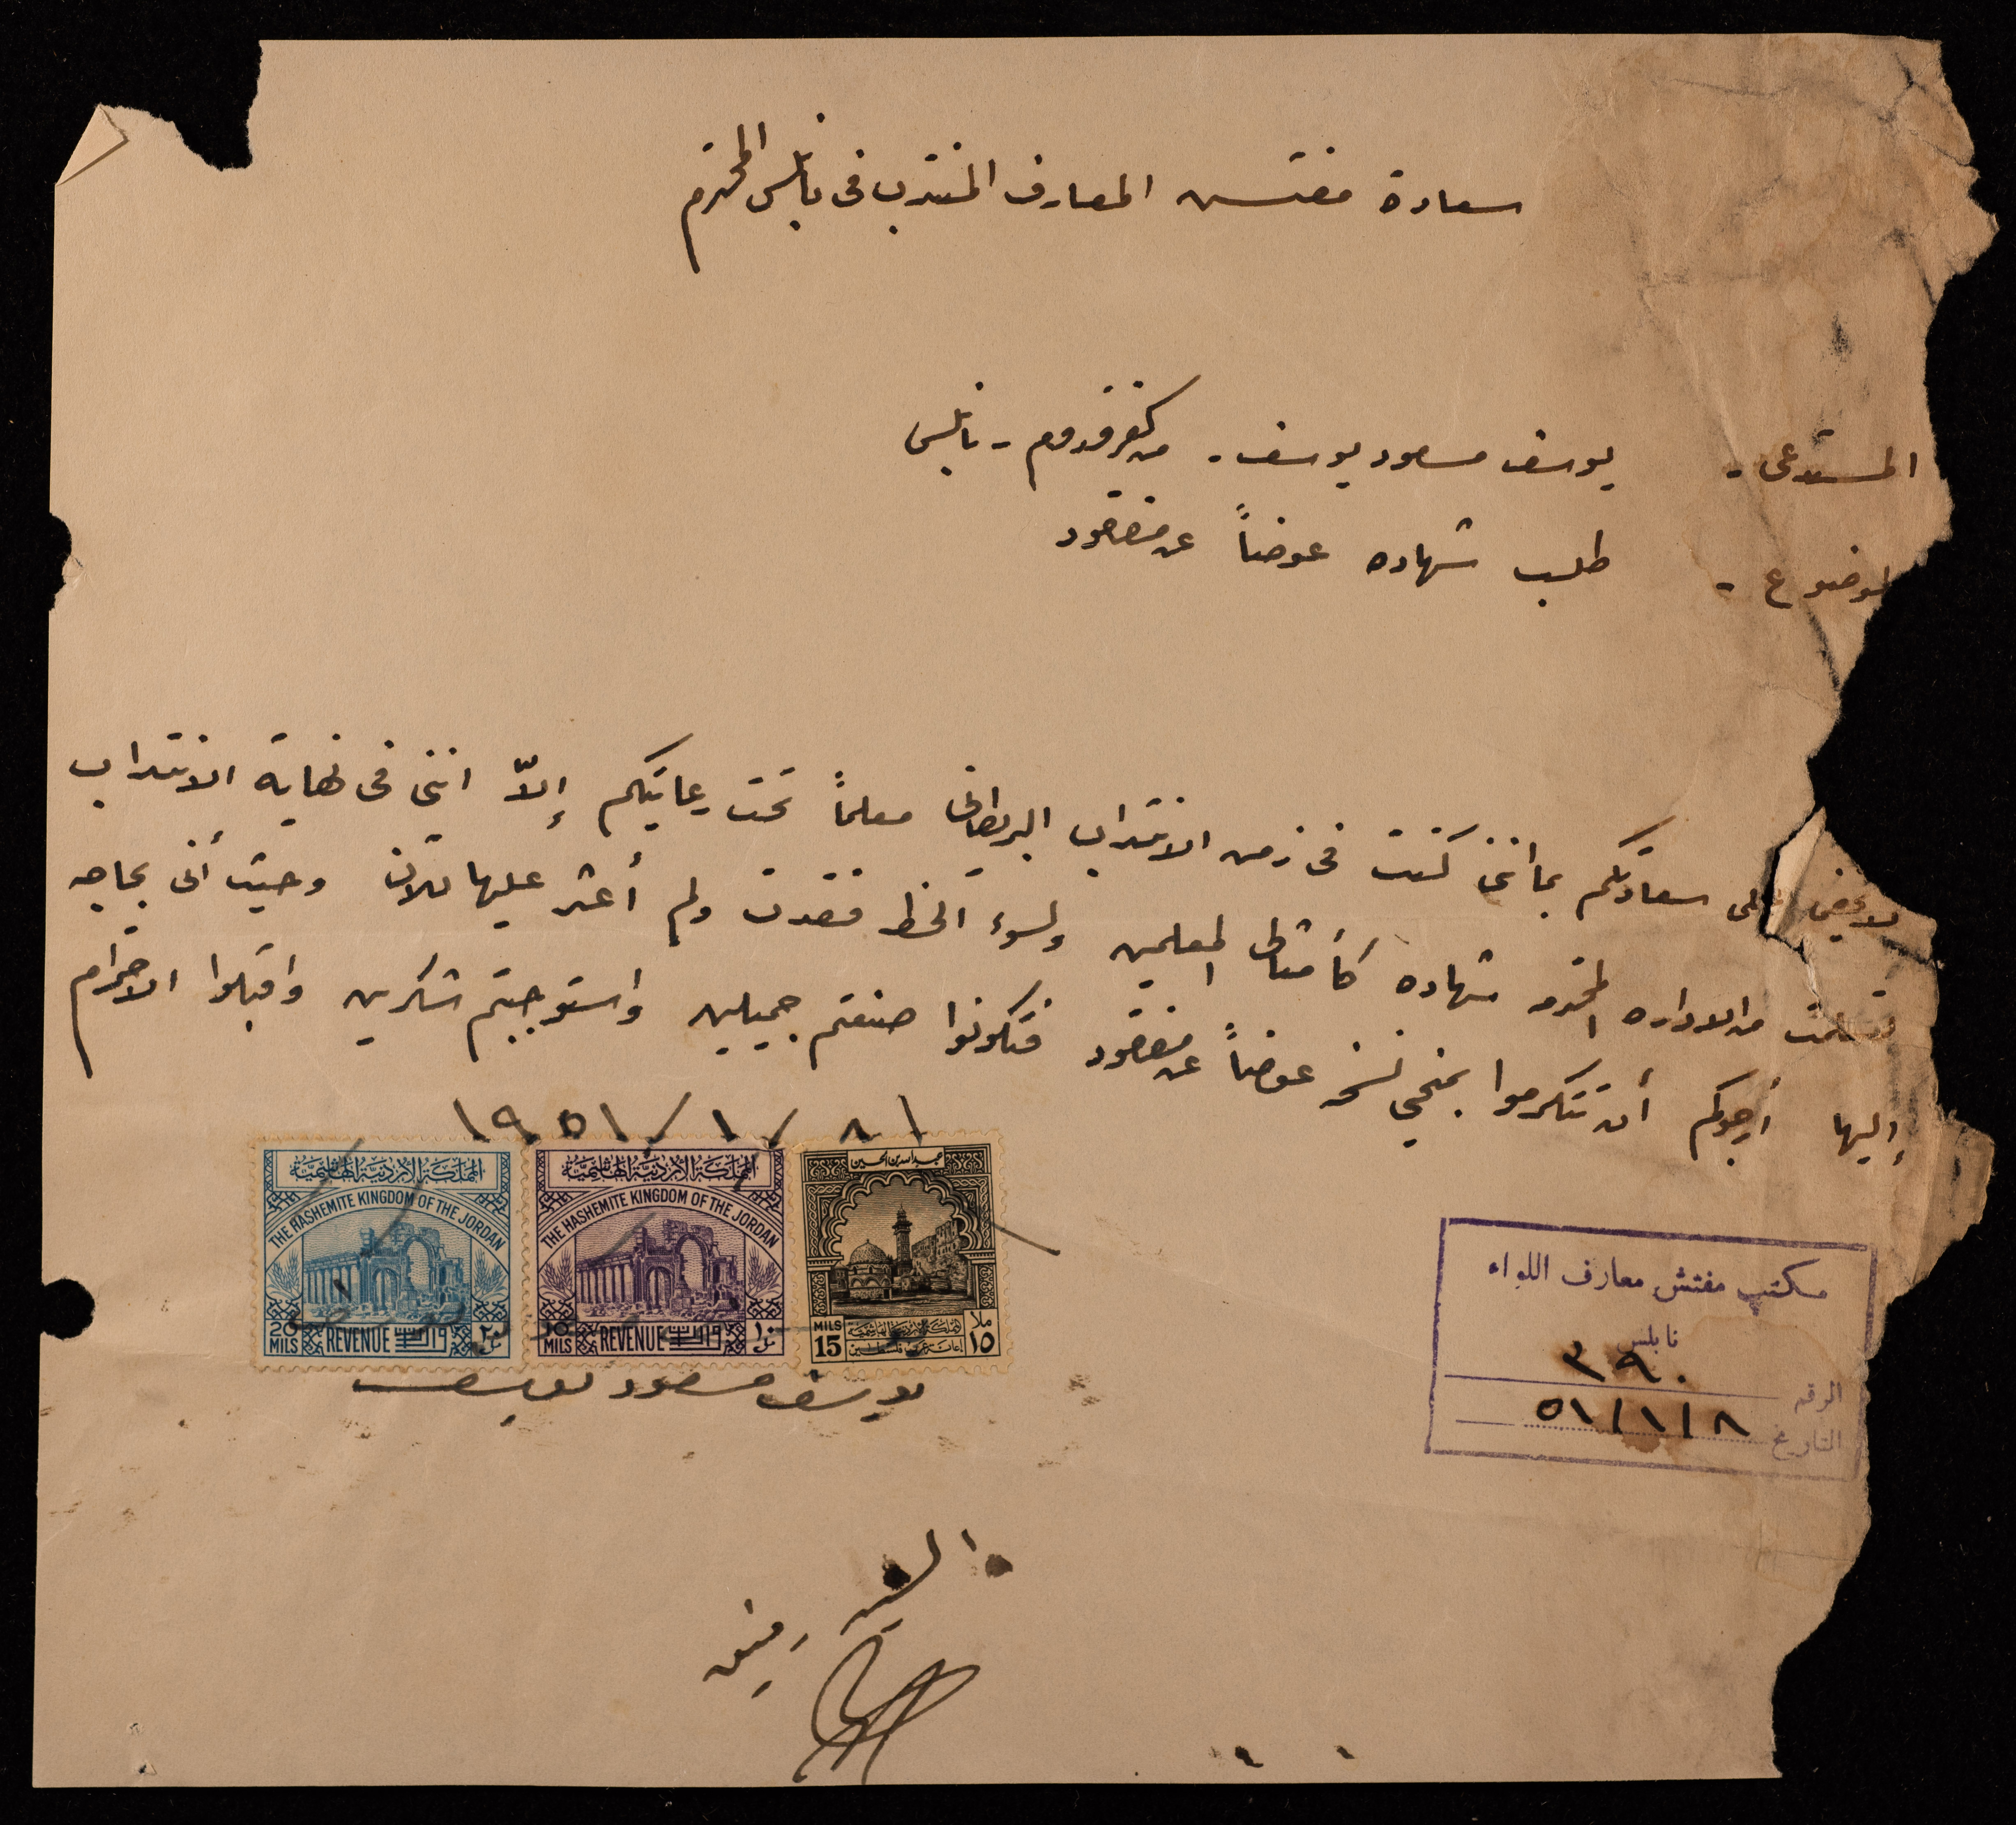 سعادة مفتش المعارف المنتدب في نابلس المحترم
المستدعي - يوسف مسعود يوسف - من كفر قدوم - نابلس
الموضوع - طلب شهاده عوضاً عن مفقود
لا يخفى على سعادتكم بما انني كنت في زمن الانتداب البريطاني معلماً تحت رعايتكم إلاّ انني في نهاية الانتداب
تسلمت من الاداره المحترمه شهاده كأمثالي المعلمين ولسوء الحظ فقدت ولم أعثر عليها للآن وحيث أني بحاجه
إليها أرجوكم أن تتكرموا بمنحي نسخه عوضاً عن مفقود فتكونوا صنعتم جميلين واستوجبتم شكرين واقبلوا الاحترام
٨/١/١٩٥١
المملكة الأردنية الهاشمية
THE HASHEMITE KINGDOM OF THE JORDAN
20 MILS REVENUE ٢٠
المملكة الأردنية الهاشمية
THE HASHEMITE KINGDOM OF THE JORDAN
10 MILS REVENUE ١٠
عبدالله بن الحسين
MILS 15 المملكة الأردنية الهاشمية ملا ١٥
يوسف مسعود يوسف
مكتب مفتش معارف اللواء
نابلس
الرقم ٣٩٠
التاريخ ٥١/١/٨
السيد رفيق